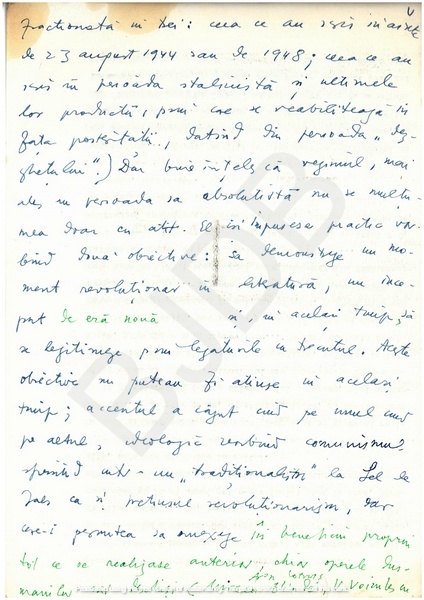 V
fracționată în trei: ceea ce au scris înainte
de 23 august 1944 sau de 1948; ceea ce au
scris în perioada stalinistă și ultimele
lor producții, prin care se reabilitează în
fața posterității, datând din perioada „dez-
ghețului".) Dar bine înțeles că regimul, mai
ales în perioada sa absolutistă nu se mulțu-
mea doar cu atât. El își impusese practic vor-
bind două obiective: să demonstreze un mo-
ment revoluționar în literatură, un înce-
put de eră nouă și, în același timp, să
se legitimeze prin legăturile cu trecutul. Aceste
obiective nu puteau fi atinse în același
timp; accentul a căzut când pe unul când
pe altul, ideologic vorbind comunismul
sprijind într-un „tradiționalism" la fel de
fals ca și pretinsul revoluționarism, dar
care-i permitea să anexeze în beneficiu propriu
tot ce se realizase anterior, chiar operele
BJDB